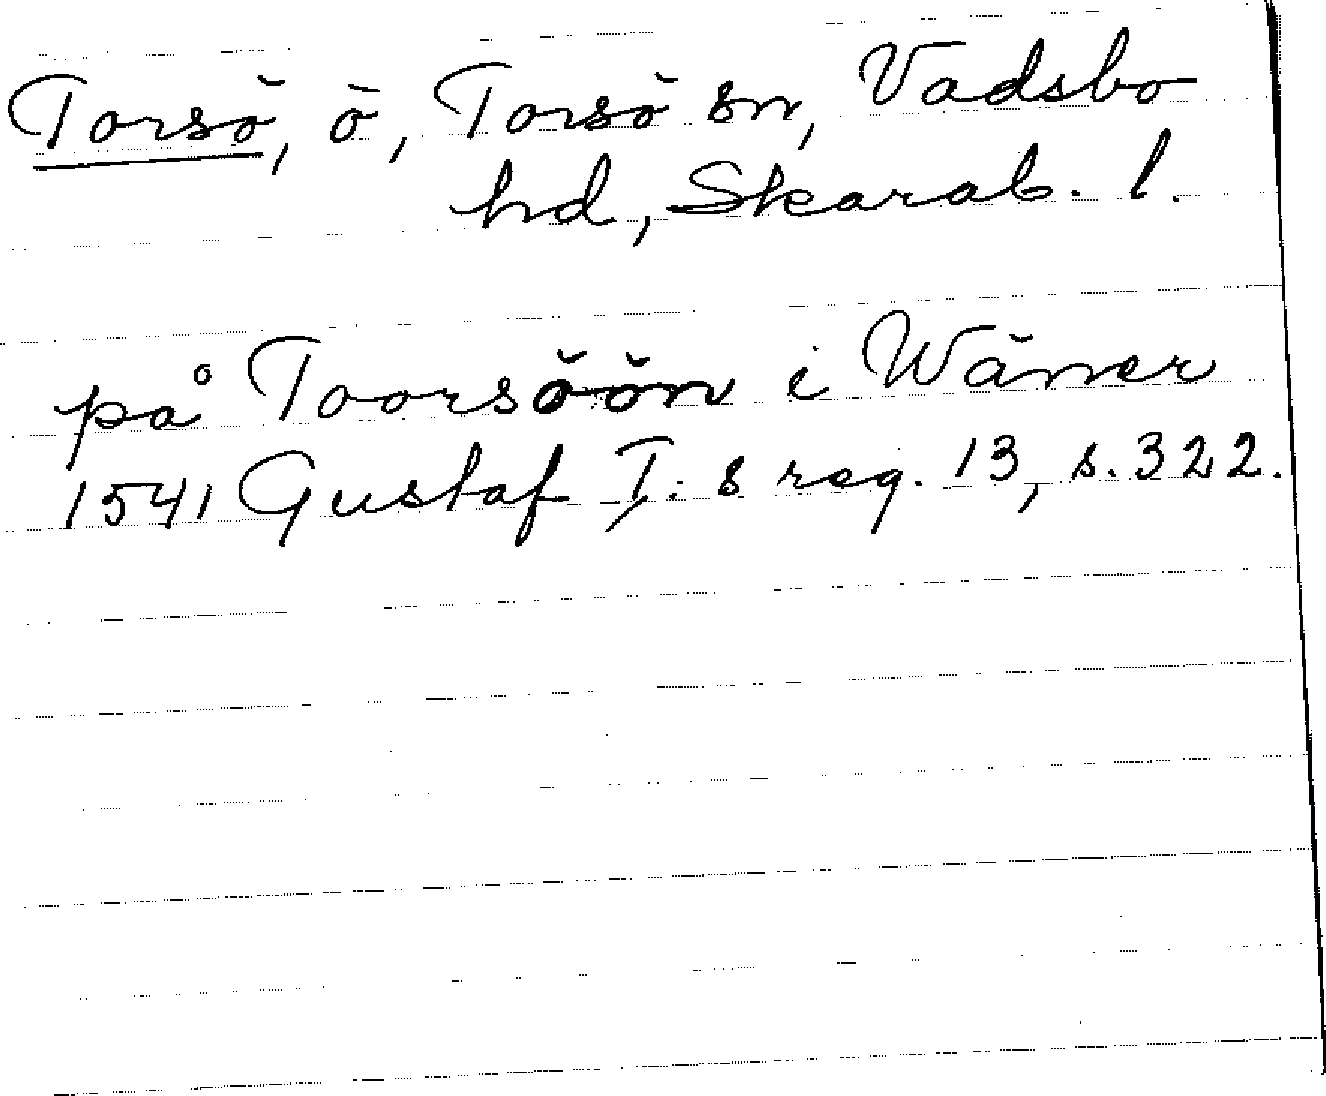 Torsö, ö, Torsö sn, Vadsbo
hd, Skarab. l.
på Toorsöön i Wäner
1541 Gustaf I:s reg. 13, s. 322.